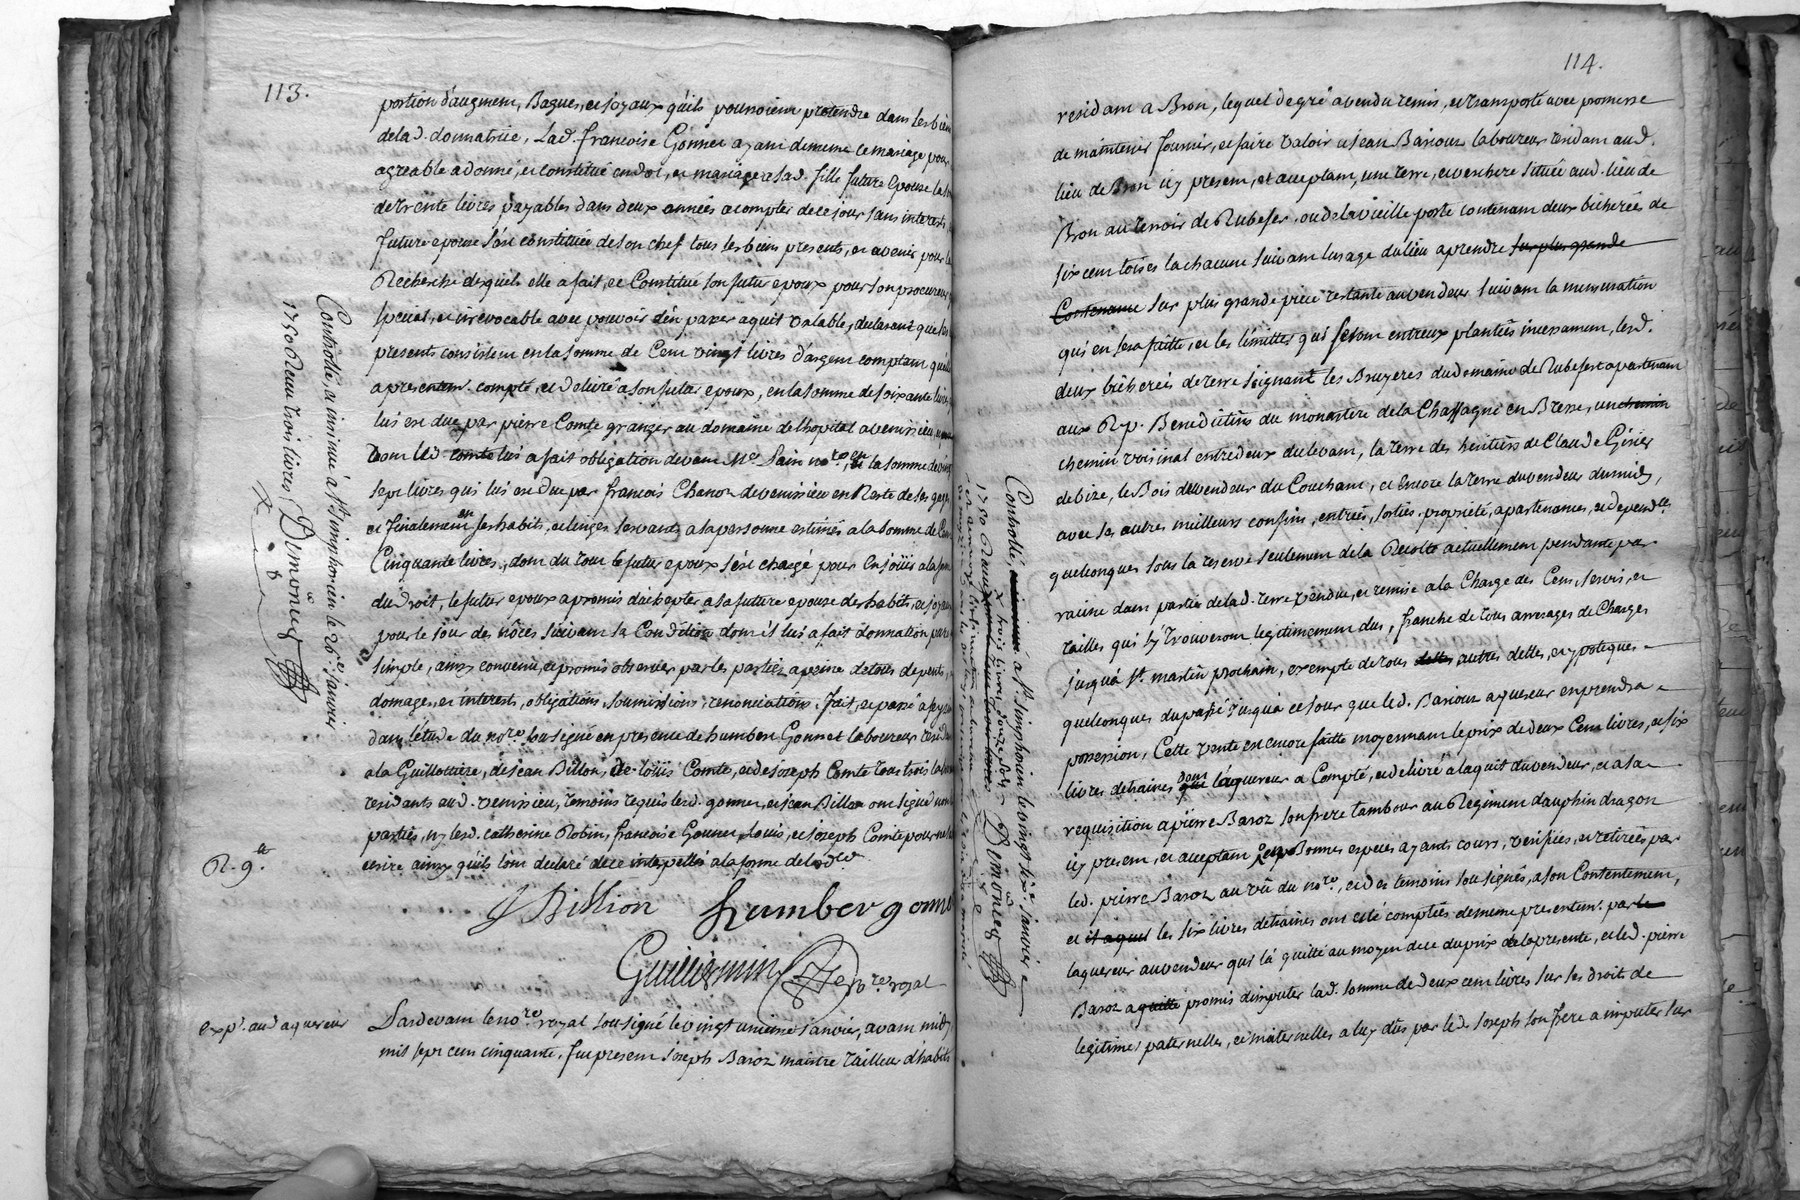 113.
portion d'augment, Bagues, et joyaux qu'ils pourroient pretendre dans les biens
de lad. donnatrice, Lad. francoise Gonnet ayant de meme ce mariage pour
agreable a donné, et constitué en dot, et mariage a sad. fille future Epouse la so
de trente livres payables dans deux années a compter de ce jour sans interests
future epouse s'est constituée de son chef tous les biens presents, et avenir pour la
Recherche desquels elle a fait, et Constitué son futur epoux pour son procureur
special, et irrevocable avec pouvoir d'en passer aquit valable, declarant que ses
presents consistent en la somme de Cent vingt livres d'argent comptant qu'elle
a presentem. compté, et delivré a son futur epoux, en la somme de soixante livres
lui est due par pierre Comte granger au domaine de l'hopital a venissieu,
dont led. comte lui a fait obligation devant Me. Sain nore, en la somme de vingt
sept livres qui lui est due par francois Chanoz de venissieu en Reste de ses gages
et finalement en ses habits, et linges servants a sa personne estimés a la somme de Cent
Cinquante livres, dont du tout le futur epoux s'est chargé pour En joüir a la forme
du droit, le futur epoux a promis d'achepter a sa future epouse des habits, et joyaux
pour le jour des nôces suivant sa Condition dont il lui a fait donnation pure
simple, ainsy convenu, et promis observer par les parties a peine de tous depents,
domages, et interests, obligations, soumissions, renonciations, fait, et passé a
dans l'étude du nore. sousigné en presence de humbert Gonnet laboureur resident
a la Guillottiere, de jean Billon, de loüis Comte, et de joseph Comte tous trois laboureurs
residants aud. venissieu, temoins requis led. gonnet, et jean Billon ont signé non
parties, ny lesd. catherine Robin, francoise Gonnet Louis, et joseph Comte pour ne
ecrire ainsy qu'ils l'ont declaré de ce interpellés a la forme de lordce.
R. 9.te
J Billion humber gonnet
Guillermin
nore royal
exp. aud aquereur
Pardevant le nore royal sousigné le vingt unieme janvier, avant midy
mil sept cent cinquante, fut present joseph Baroz maitre tailleur d'habits
Controllé, et insinué à St simphorien le 26e. janvier
1750 Reçu trois livres Demönceÿ
114.
residant a Bron, lequel de gré a vendu remis, et transporté avec promesse
de maintenir fournir, et faire valoir a jean Barioux laboureur residant aud.
lieu de Bron icy present, et aceptant, une terre, et verchere située aud. lieu de
Bron au terroir de Rubefer, ou de la vieille poste contenant deux bicherées de
six cent toises la chacune suivant l'usage du lieu a prendre sur plus grande
Contenance sur plus grande piece restante au vendeur suivant la mensuration
qui en sera faitte, et les limittes qui seront entreux plantées incessament, lesd.
deux bicherées de terre joignant les Bruyeres du domaine de Rubefer apartenant
aux R.p. Benedictins du monastere de la Chassagne en Bresse, un chemin
chemin voisinal entredeux du levant, la terre des heritiers de Claude Giries
de bize, le Bois du vendeur du Couchant, et Encore la terre du vendeur du midy,
avec ses autres meilleurs confins, entrées, sorties, propriété, apartenances, et dependces
quelconques sous la reserve seulement de la Recolte actuellement pendante par
racine dans partie de lad. terre vendue, et remise a la Charge des Cens, servis, et
tailles qui s'y trouveront legitimement dus, franche de tous arrerages de Charges
jusqu'a St. martin prochain, exempte de tous dettes autres dettes, et ypoteques
quelconques du passé jusqu'a ce jour que led. Barioux aquereur en prendra
possession, Cette vente est encore faitte moyennant le prix de deux Cent livres, et six
livres detraines dont qui l'aquereur a Compté, et delivré a l'aquit du vendeur, et a sa
requisition a pierre Baroz son frere tambour au Regiment dauphin dragon
icy present, et aceptant en Bonnes especes ayants cours, verifiées, et retirées par
led. pierre Baroz au vû du nore, et des temoins sousignés, a son Contentement,
et et aquet les six livres detraines ont eté comptées de meme presentemt. par le
l'aquereur au vendeur qui l'a quitté au moyen de ce du prix de la presente, et led. pierre
Baroz a quitté promis d'imputer lad. somme de deux cent livres sur ses droit de
legitimes paternelles, et maternelles a luy dûs par led. joseph son frere a imputer sur
Controllé, et insinué a St. simphorien le vingt six janvier
1750 Reçu
trois livres douze sols
Demönceÿ